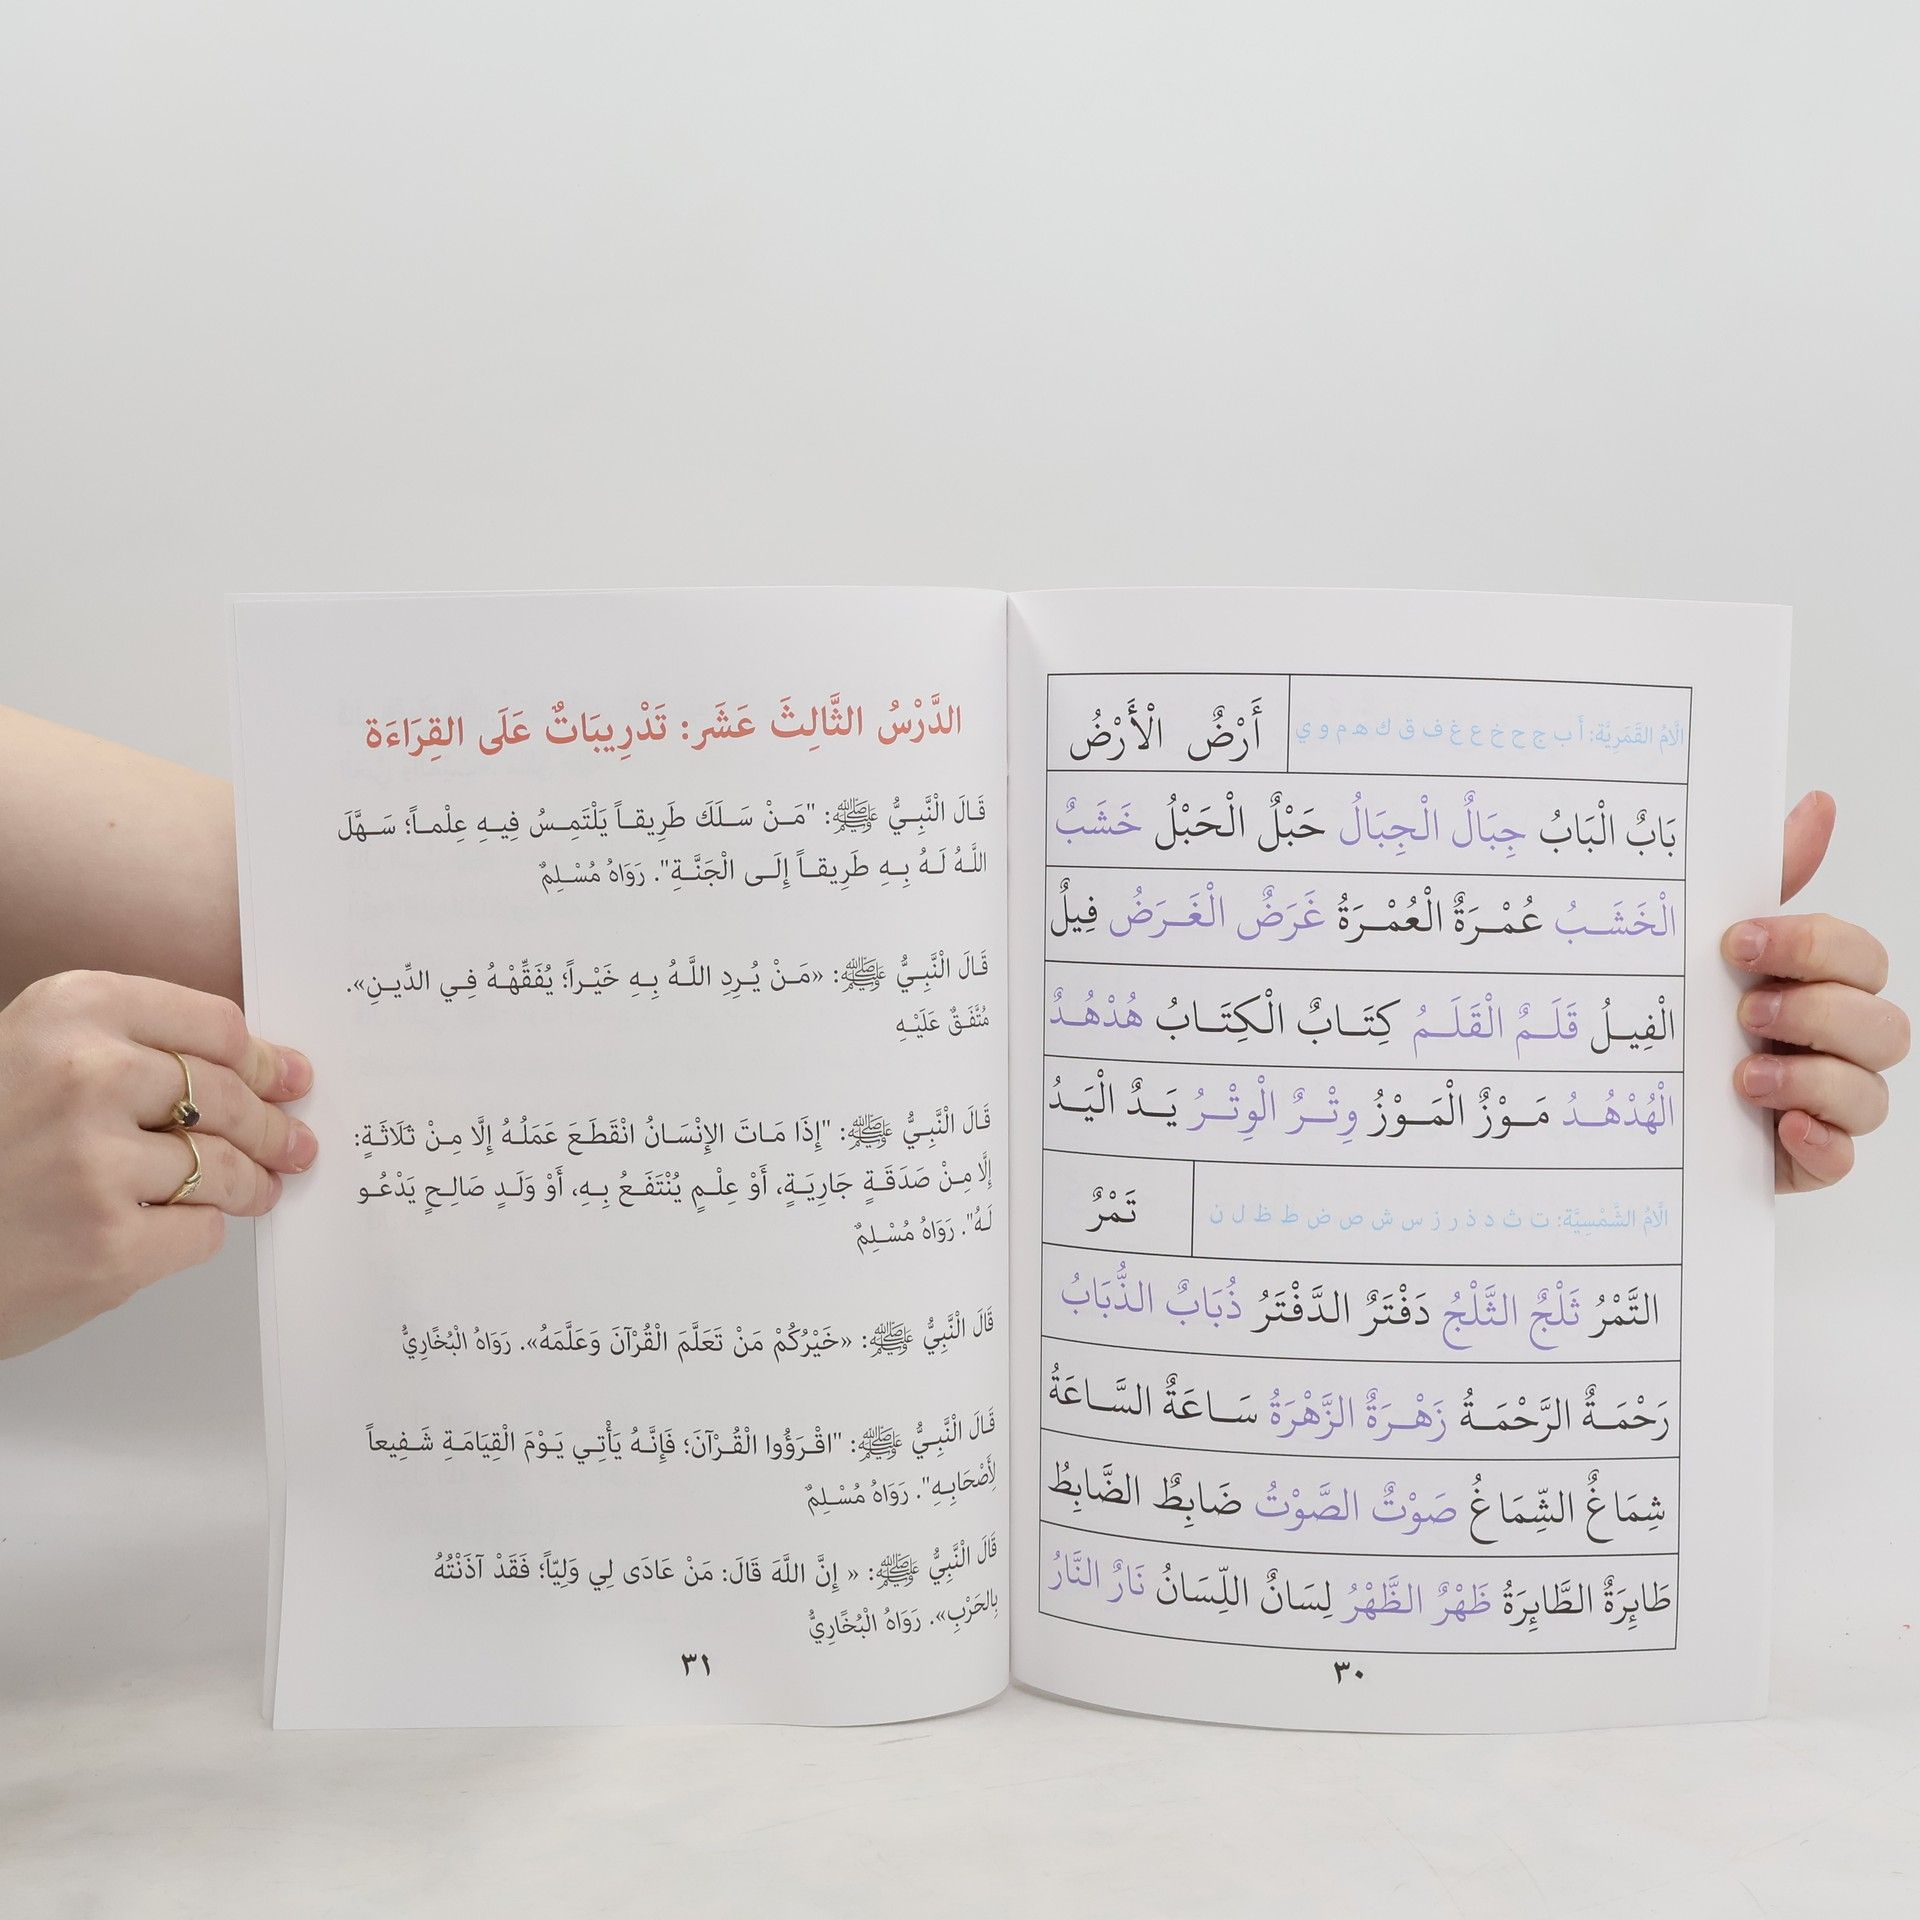 الَّامُ القَمَرِيَّة: أ ب ج ح خ ع غ ف ق ك ه م و ي
أَرْضٌ الْأَرْضُ
بَابٌ الْبَابُ جِبَالٌ الْجِبَالُ حَبْلٌ الْحَبْلُ خَشَبٌ
الْخَشَبُ عُمْرَةٌ الْعُمْرَةُ غَرَضٌ الْغَرَضُ فِيلٌ
الْفِيلُ قَلَمٌ الْقَلَمُ كِتَابٌ الْكِتَابُ هُدْهُدٌ
الْهُدْهُدُ مَوْزٌ الْمَوْزُ وِتْرٌ الْوِتْرُ يَدٌ الْيَدُ
الَّامُ الشَّمْسِيَّة: ت ث د ذ ر ز س ش ص ض ط ظ ل ن
تَمْرٌ
التَّمْرُ ثَلْجٌ الثَّلْجُ دَفْتَرٌ الدَّفْتَرُ ذُبَابٌ الذُّبَابُ
رَحْمَةٌ الرَّحْمَةُ زَهْرَةٌ الزَّهْرَةُ سَاعَةٌ السَّاعَةُ
شِمَاغٌ الشِّمَاغُ صَوْتٌ الصَّوْتُ ضَابِطٌ الضَّابِطُ
طَائِرَةٌ الطَّائِرَةُ ظَهْرٌ الظَّهْرُ لِسَانٌ اللِّسَانُ نَارٌ النَّارُ
٣٠
الدَّرْسُ الثَّالِثَ عَشَر: تَدْرِيبَاتٌ عَلَى القِرَاءَة
قَالَ الْنَّبِيُّ ﷺ: "مَنْ سَلَكَ طَرِيقاً يَلْتَمِسُ فِيهِ عِلْماً؛ سَهَّلَ
اللَّهُ لَهُ بِهِ طَرِيقاً إِلَى الْجَنَّةِ". رَوَاهُ مُسْلِمٌ
قَالَ الْنَّبِيُّ ﷺ: «مَنْ يُرِدِ اللَّهُ بِهِ خَيْراً؛ يُفَقِّهْهُ فِي الدِّينِ».
مُتَّفَقٌ عَلَيْهِ
قَالَ الْنَّبِيُّ ﷺ: "إِذَا مَاتَ الإِنْسَانُ انْقَطَعَ عَمَلُهُ إِلَّا مِنْ ثَلَاثَةٍ:
إِلَّا مِنْ صَدَقَةٍ جَارِيَةٍ، أَوْ عِلْمٍ يُنْتَفَعُ بِهِ، أَوْ وَلَدٍ صَالِحٍ يَدْعُو
لَهُ". رَوَاهُ مُسْلِمٌ
قَالَ الْنَّبِيُّ ﷺ: «خَيْرُكُمْ مَنْ تَعَلَّمَ الْقُرْآنَ وَعَلَّمَهُ». رَوَاهُ الْبُخَارِيُّ
قَالَ الْنَّبِيُّ ﷺ: "اقْرَؤُوا الْقُرْآنَ؛ فَإِنَّهُ يَأْتِي يَوْمَ الْقِيَامَةِ شَفِيعاً
لِأَصْحَابِهِ". رَوَاهُ مُسْلِمٌ
قَالَ الْنَّبِيُّ ﷺ: « إِنَّ اللَّهَ قَالَ: مَنْ عَادَى لِي وَلِيّاً؛ فَقَدْ آذَنْتُهُ
بِالحَرْبِ». رَوَاهُ الْبُخَارِيُّ
٣١